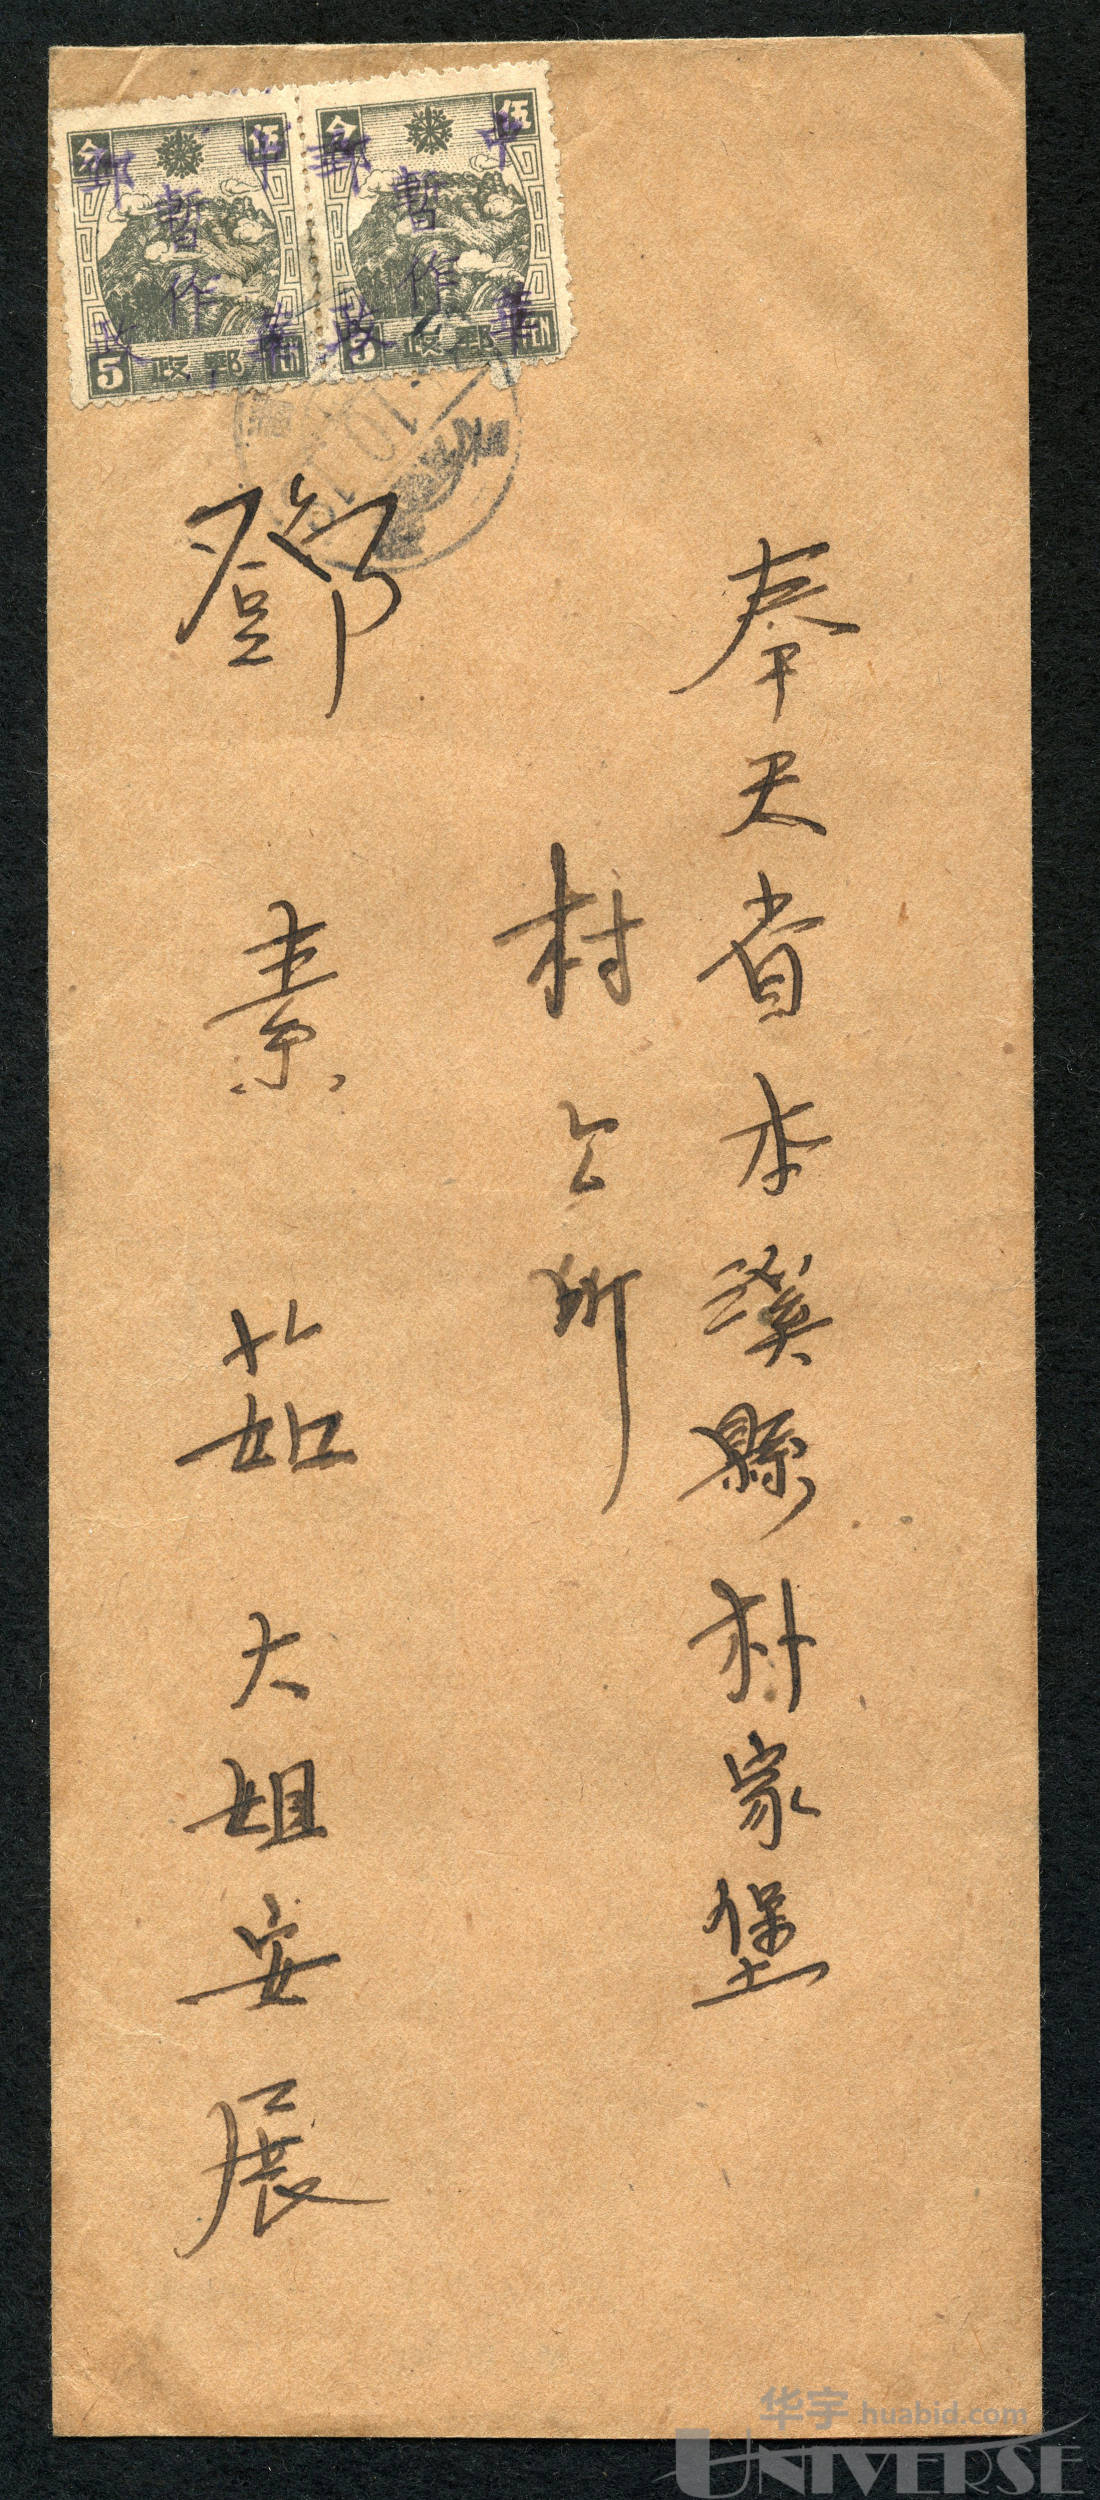 奉天省本溪縣朴家堡
村公所
鄧素茹大姐安展
伍 分
中華郵政
暫作
5 郵政
伍 分
中華郵政
暫作
5 郵政
华宇 huabid.com
UNIVERSE